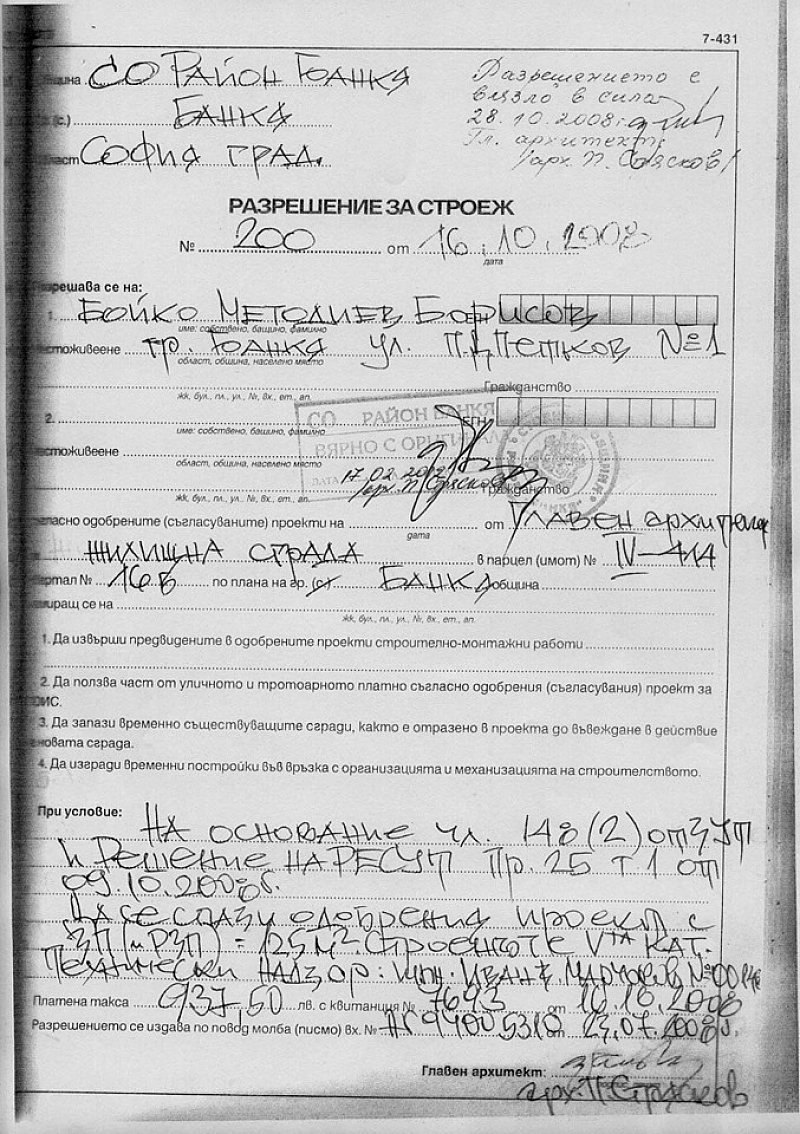 7-431
община СО Район Банкя
(с.) Банкя
област София град.
Разрешението е
влязло в сила
28.10.2008
Гл. архитект:
/арх. П.
РАЗРЕШЕНИЕ ЗА СТРОЕЖ
№ 200 от 16.10.2008
дата
Разрешава се на:
1. Бойко Методиев Борисов
име: собствено, бащино, фамилно
местоживеене гр. Банкя ул. П.Д. Петков №1
област, община, населено място
Гражданство
жк, бул., пл., ул., №, вх., ет., ап.
СО РАЙОН БАНКЯ
2. ЕГН
име: собствено, бащино, фамилно
ВЯРНО С ОРИГИНАЛА
местоживеене
област, община, населено място
ДАТА 17.02.2012
арх. П. Гражданство
жк, бул., пл., ул., №, вх., ет., ап.
съгласно одобрените (съгласуваните) проекти на от Главен архитект
дата
жилищна сграда в парцел (имот) № IV-414
квартал № 16в по плана на гр. (с) Банкя община
намиращ се на
жк, бул., пл., ул., №, вх., ет., ап.
1. Да извърши предвидените в одобрените проекти строително-монтажни работи
2. Да ползва част от уличното и тротоарното платно съгласно одобрения (съгласувания) проект за
ОИС.
3. Да запази временно съществуващите сгради, както е отразено в проекта до въвеждане в действие
новата сграда.
4. Да изгради временни постройки във връзка с организацията и механизацията на строителството.
При условие:
На основание чл. 148 (2) от ЗУТ
и Решение на РЕСУТ Пр. 25 т 1 от
09.10.2008г.
Да се спази одобрения проект с
ЗП (и РЗП) = 125 м². Строежът е Vта кат.
Технически надзор: инж. Иван
Платена такса 937,50 лв. с квитанция № 7643 от 10.10.2008
Разрешението се издава по повод молба (писмо) вх. № 23.07.2008г.
Главен архитект:
арх. П.